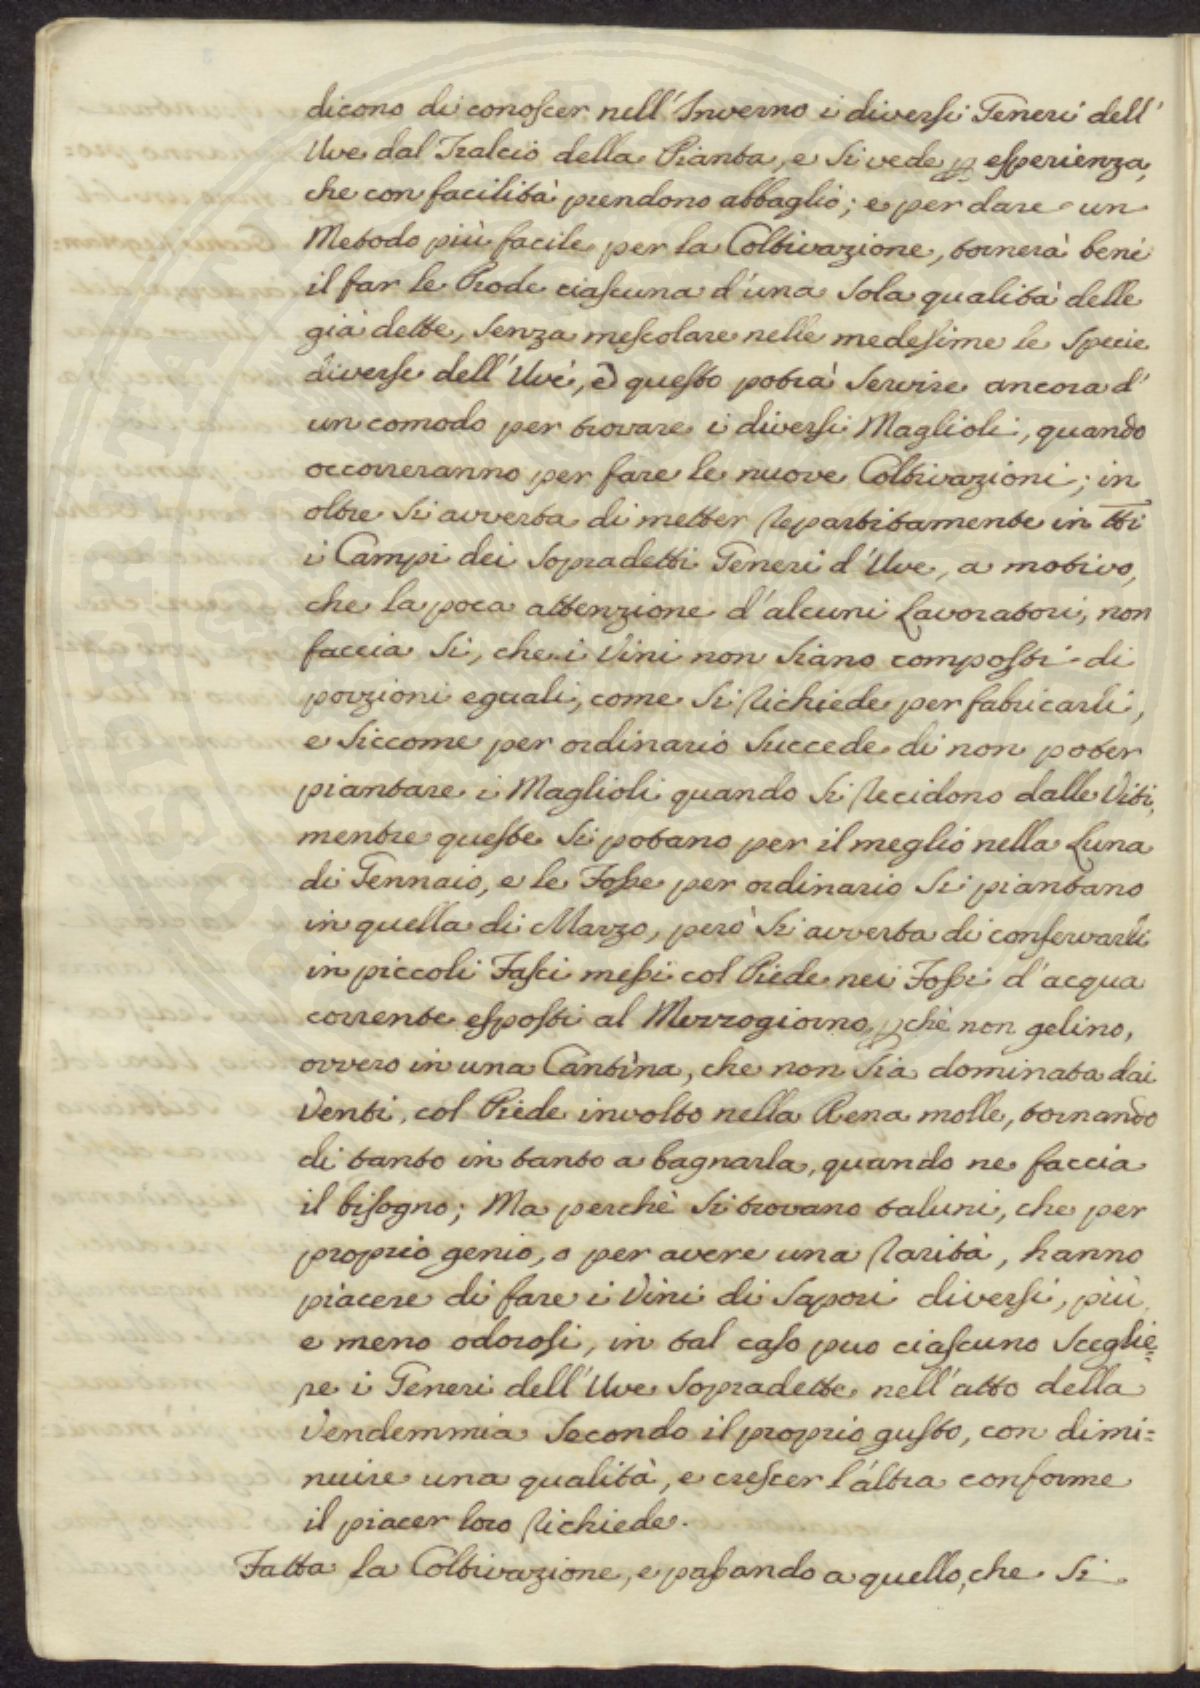 dicono di conoscer nell'Inverno i diversi Generi dell'
Uve dal Tralcio della Pianta, e si vede p esperienza,
che con facilità prendono abbaglio; e per dare un
Metodo più facile per la Coltivazione, tornerà bene
il far le Prode ciascuna d'una sola qualità delle
già dette, senza mescolare nelle medesime le specie
diverse dell'Uve, e questo potrà servire ancora d'
un comodo per trovare i diversi Maglioli, quando
occorreranno per fare le nuove Coltivazioni; in
oltre si avverta di metter repartitamente in tti
i Campi dei sopradetti Generi d'Uve, a motivo,
che la poca attenzione d'alcuni Lavoratori, non
faccia si, che i Vini non siano composti di
porzioni eguali, come si richiede per fabricarli,
e siccome per ordinario succede di non poter
piantare i Maglioli quando si recidono dalle Viti,
mentre queste si potano per il meglio nella Luna
di Gennaio, e le Fosse per ordinario si piantano
in quella di Marzo, però si avverta di conservarli
in piccoli Fasci messi col Piede nei Fossi d'acqua
corrente esposti al Mezzogiorno pchè non gelino,
ovvero in una Cantina, che non sia dominata dai
Venti, col Piede involto nella Rena molle, tornando
di tanto in tanto a bagnarla, quando ne faccia
il bisogno; Ma perchè si trovano taluni, che per
proprio genio, o per avere una rarità, hanno
piacere di fare i Vini di sapori diversi, più
e meno odorosi, in tal caso puo ciascuno sceglie=
re i Generi dell'Uve sopradette nell'atto della
Vendemmia secondo il proprio gusto, con dimi=
nuire una qualità, e crescer l'altra conforme
il piacer loro richiede.
Fatta la Coltivazione, e passando a quello, che si